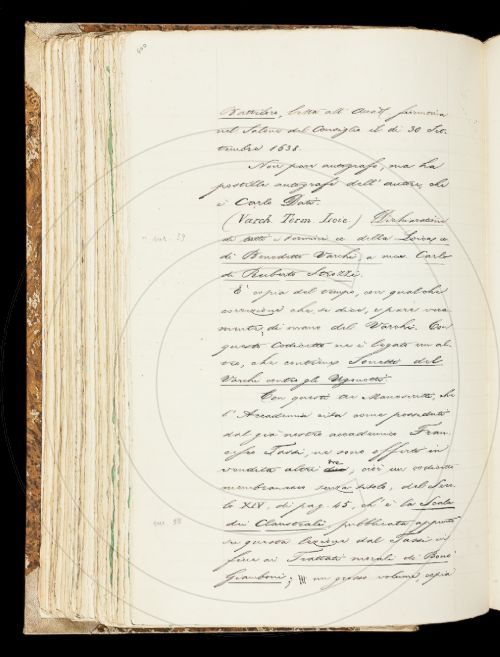 400
Battilori, letta all' Acad. fiorentina
nel Salone del Consiglio il dì 30 Set-
tembre 1638.
Non pare autografo, ma ha
postille autografe dell' autore, che
è Carlo Dati.
(Varch. Term. Loic.) Dichiarazioni
di tutti i termini della Loica
di Benedetto Varchi, a mess. Carlo
di Ruberto Strozzi.
È copia del tempo, con qualche
correzione che si dice, e pare vera-
mente, di mano del Varchi. Con
questo Codicetto ne è legato un al-
tro, che contiene Sonetti del
Varchi contro gli Ugonotti.
Con questi tre Manoscritti, che
l' Accademia cita come posseduti
dal già nostro accademico Fran-
cesco Tassi, ne sono offerti in
vendita altri tre, cioè un codicetto
membranaceo senza titolo, del Seco-
lo XIV, di pag. 45, ch' è la Scala
dei Claustrali, pubblicata appunto
su questa lezione dal Tassi in
fine ai Trattati morali di Bono
Giamboni; un grosso volume, copia